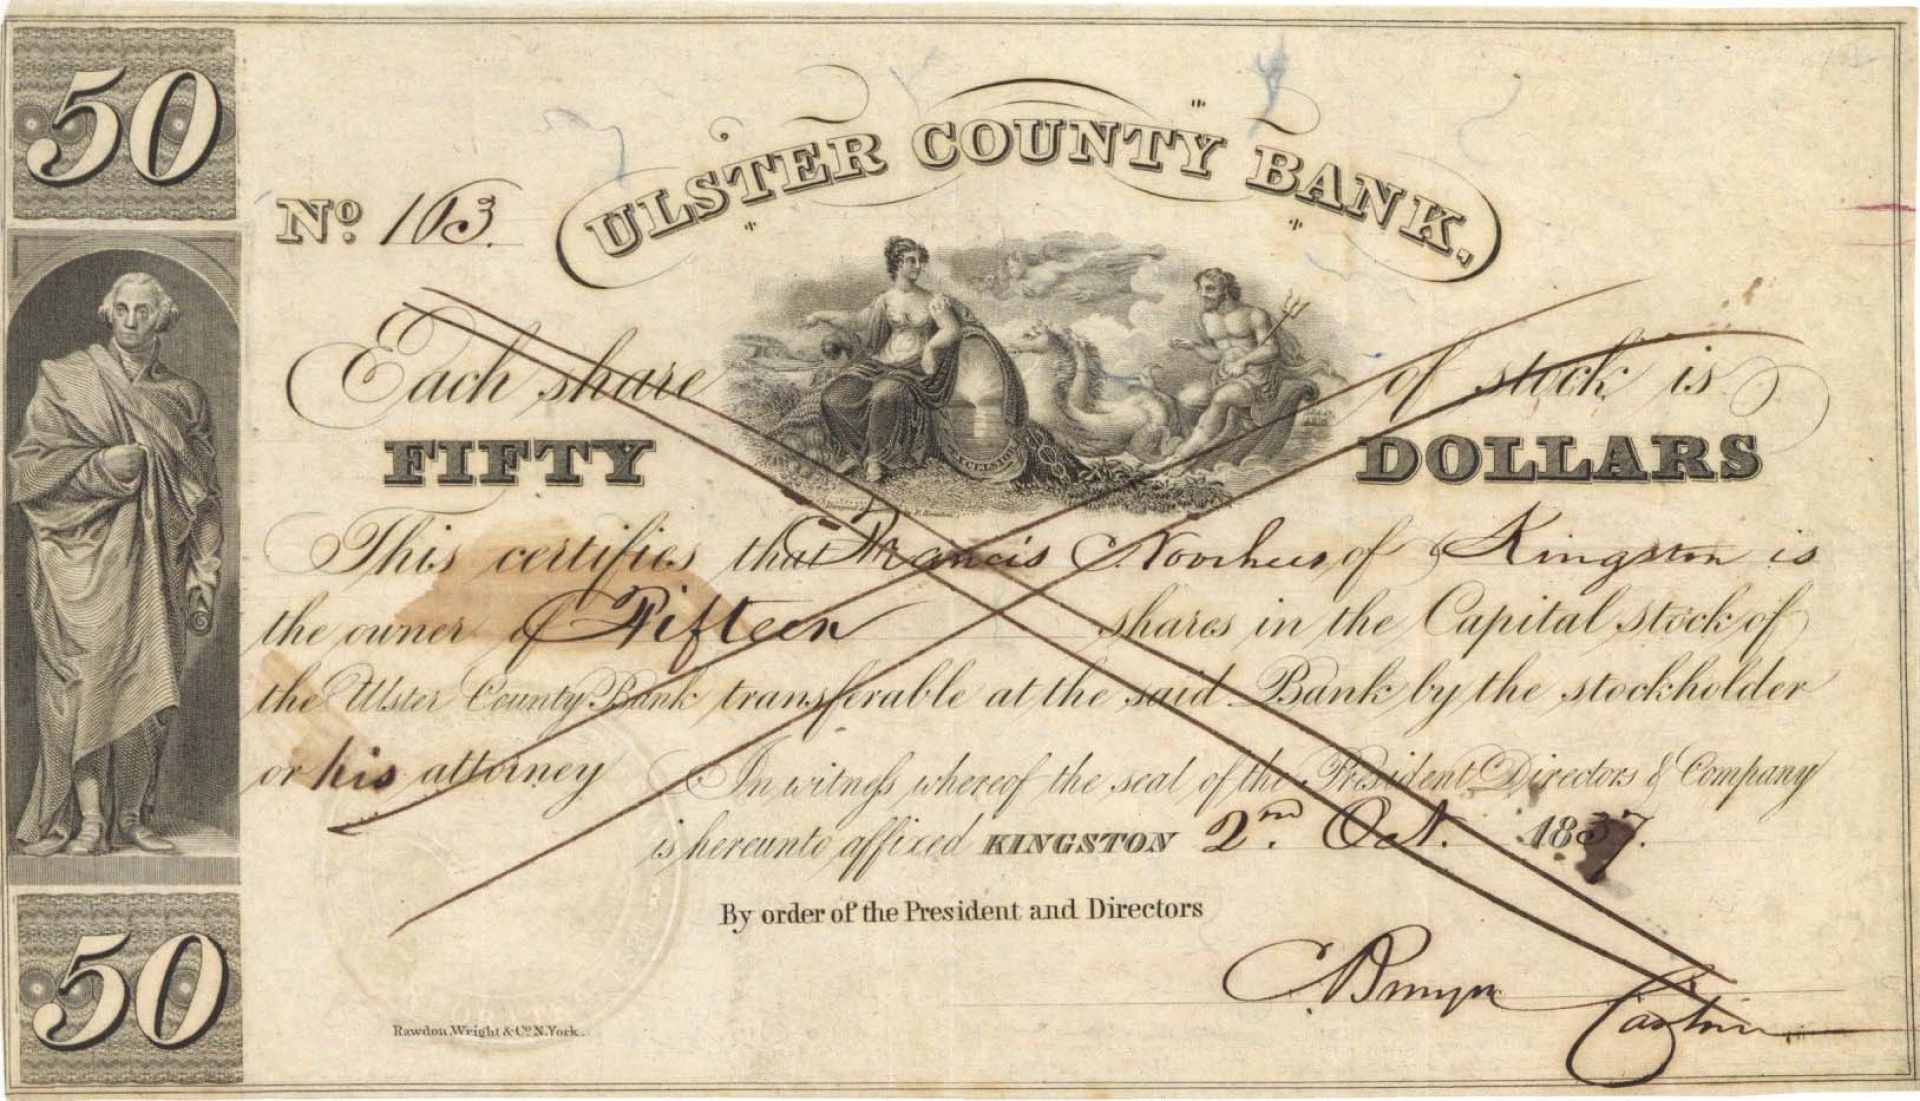 50
ULSTER COUNTY BANK.
No. 103.
Each share of stock is
FIFTY DOLLARS
EXCELSIOR
This certifies that Francis C. Voorhees of Kingston is
the owner of Fifteen shares in the Capital Stock of
the Ulster County Bank transferable at the said Bank by the stockholder
or his attorney In witness whereof the seal of the President Directors & Company
is hereunto affixed KINGSTON 2nd. Oct. 1837.
By order of the President and Directors
C Bruyn Cashier
50
Rawdon, Wright & Co. N. York.